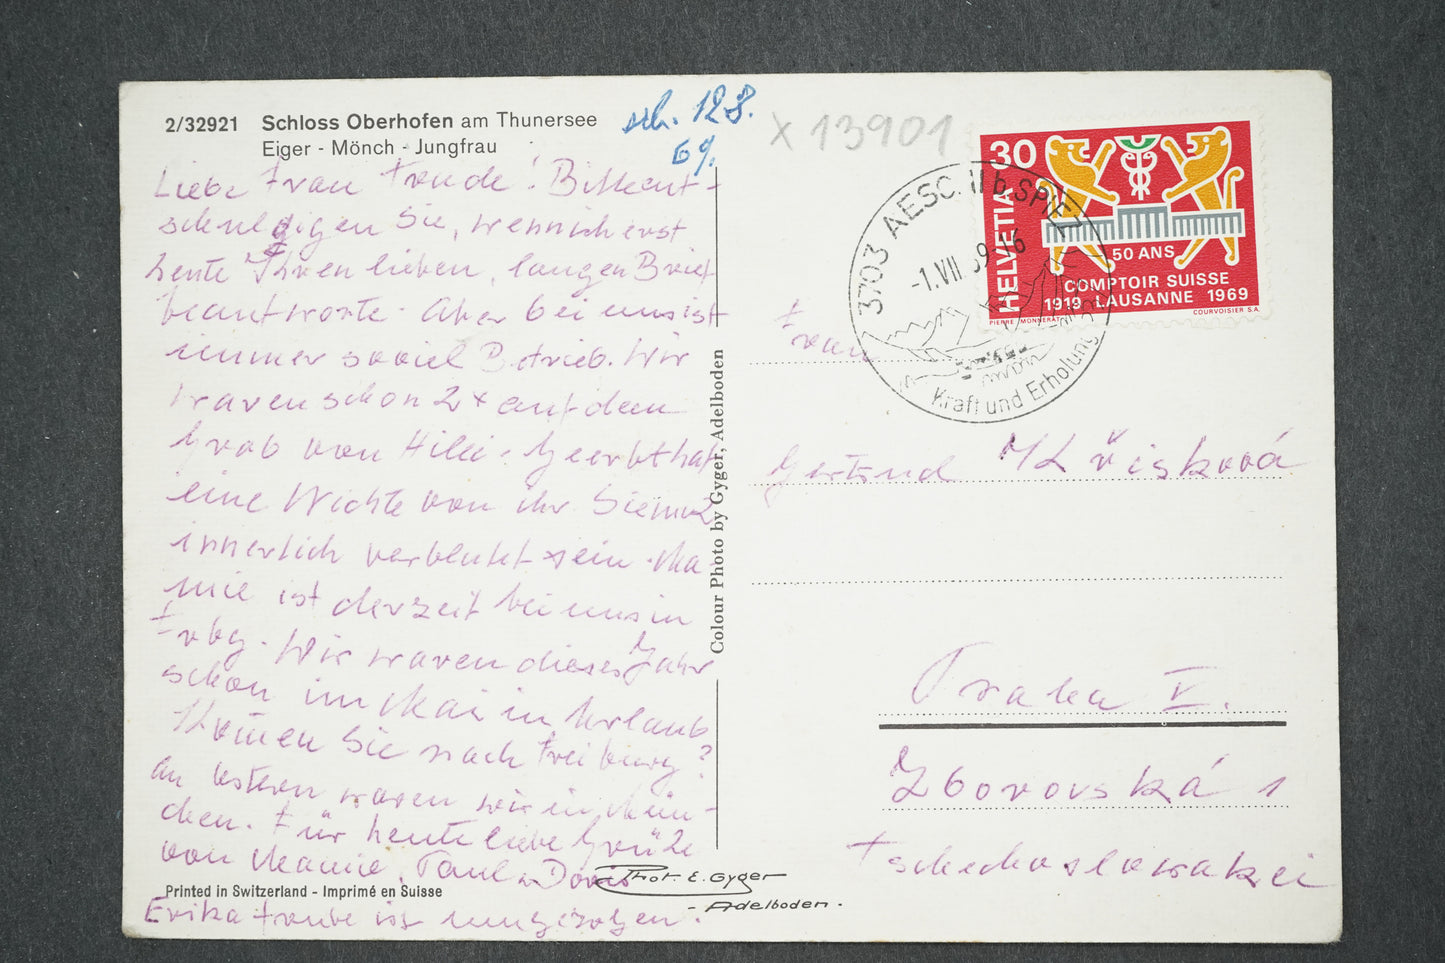 2/32921 Schloss Oberhofen am Thunersee
Eiger - Mönch - Jungfrau
sch. 12 8.
69.
X 13901
Liebe Frau Trude! Bitte ent-
schuldigen Sie, wenn ich erst
heute Ihren lieben, langen Brief
beantworte. Aber bei uns ist
immer soviel Betrieb. Wir
waren schon 2x auf dem
Grab von Hilli. Geerbt hat
eine Nichte von ihr. Sie muß
innerlich verblutet sein. Ma-
mie ist derzeit bei uns in
Frbg. Wir waren dieses Jahr
schon im Mai in Urlaub
Kommen Sie nach Freiburg?
An Ostern waren wir in Mün-
chen. Für heute liebe Grüße
von Mamie, Paul u Doris
Erika Traube ist umgezogen.
Printed in Switzerland - Imprimé en Suisse
Colour Photo by Gyger, Adelboden
Phot. E. Gyger
- Adelboden.
3703 AESCHI b. SPIEZ
-1.VII 69-16
Kraft und Erholung
30
HELVETIA
50 ANS
COMPTOIR SUISSE
1919 LAUSANNE 1969
PIERRE MONNERAT
COURVOISIER S.A.
Frau
Gertrud
Praha V.
Zborovská 1
Tschechoslowakei